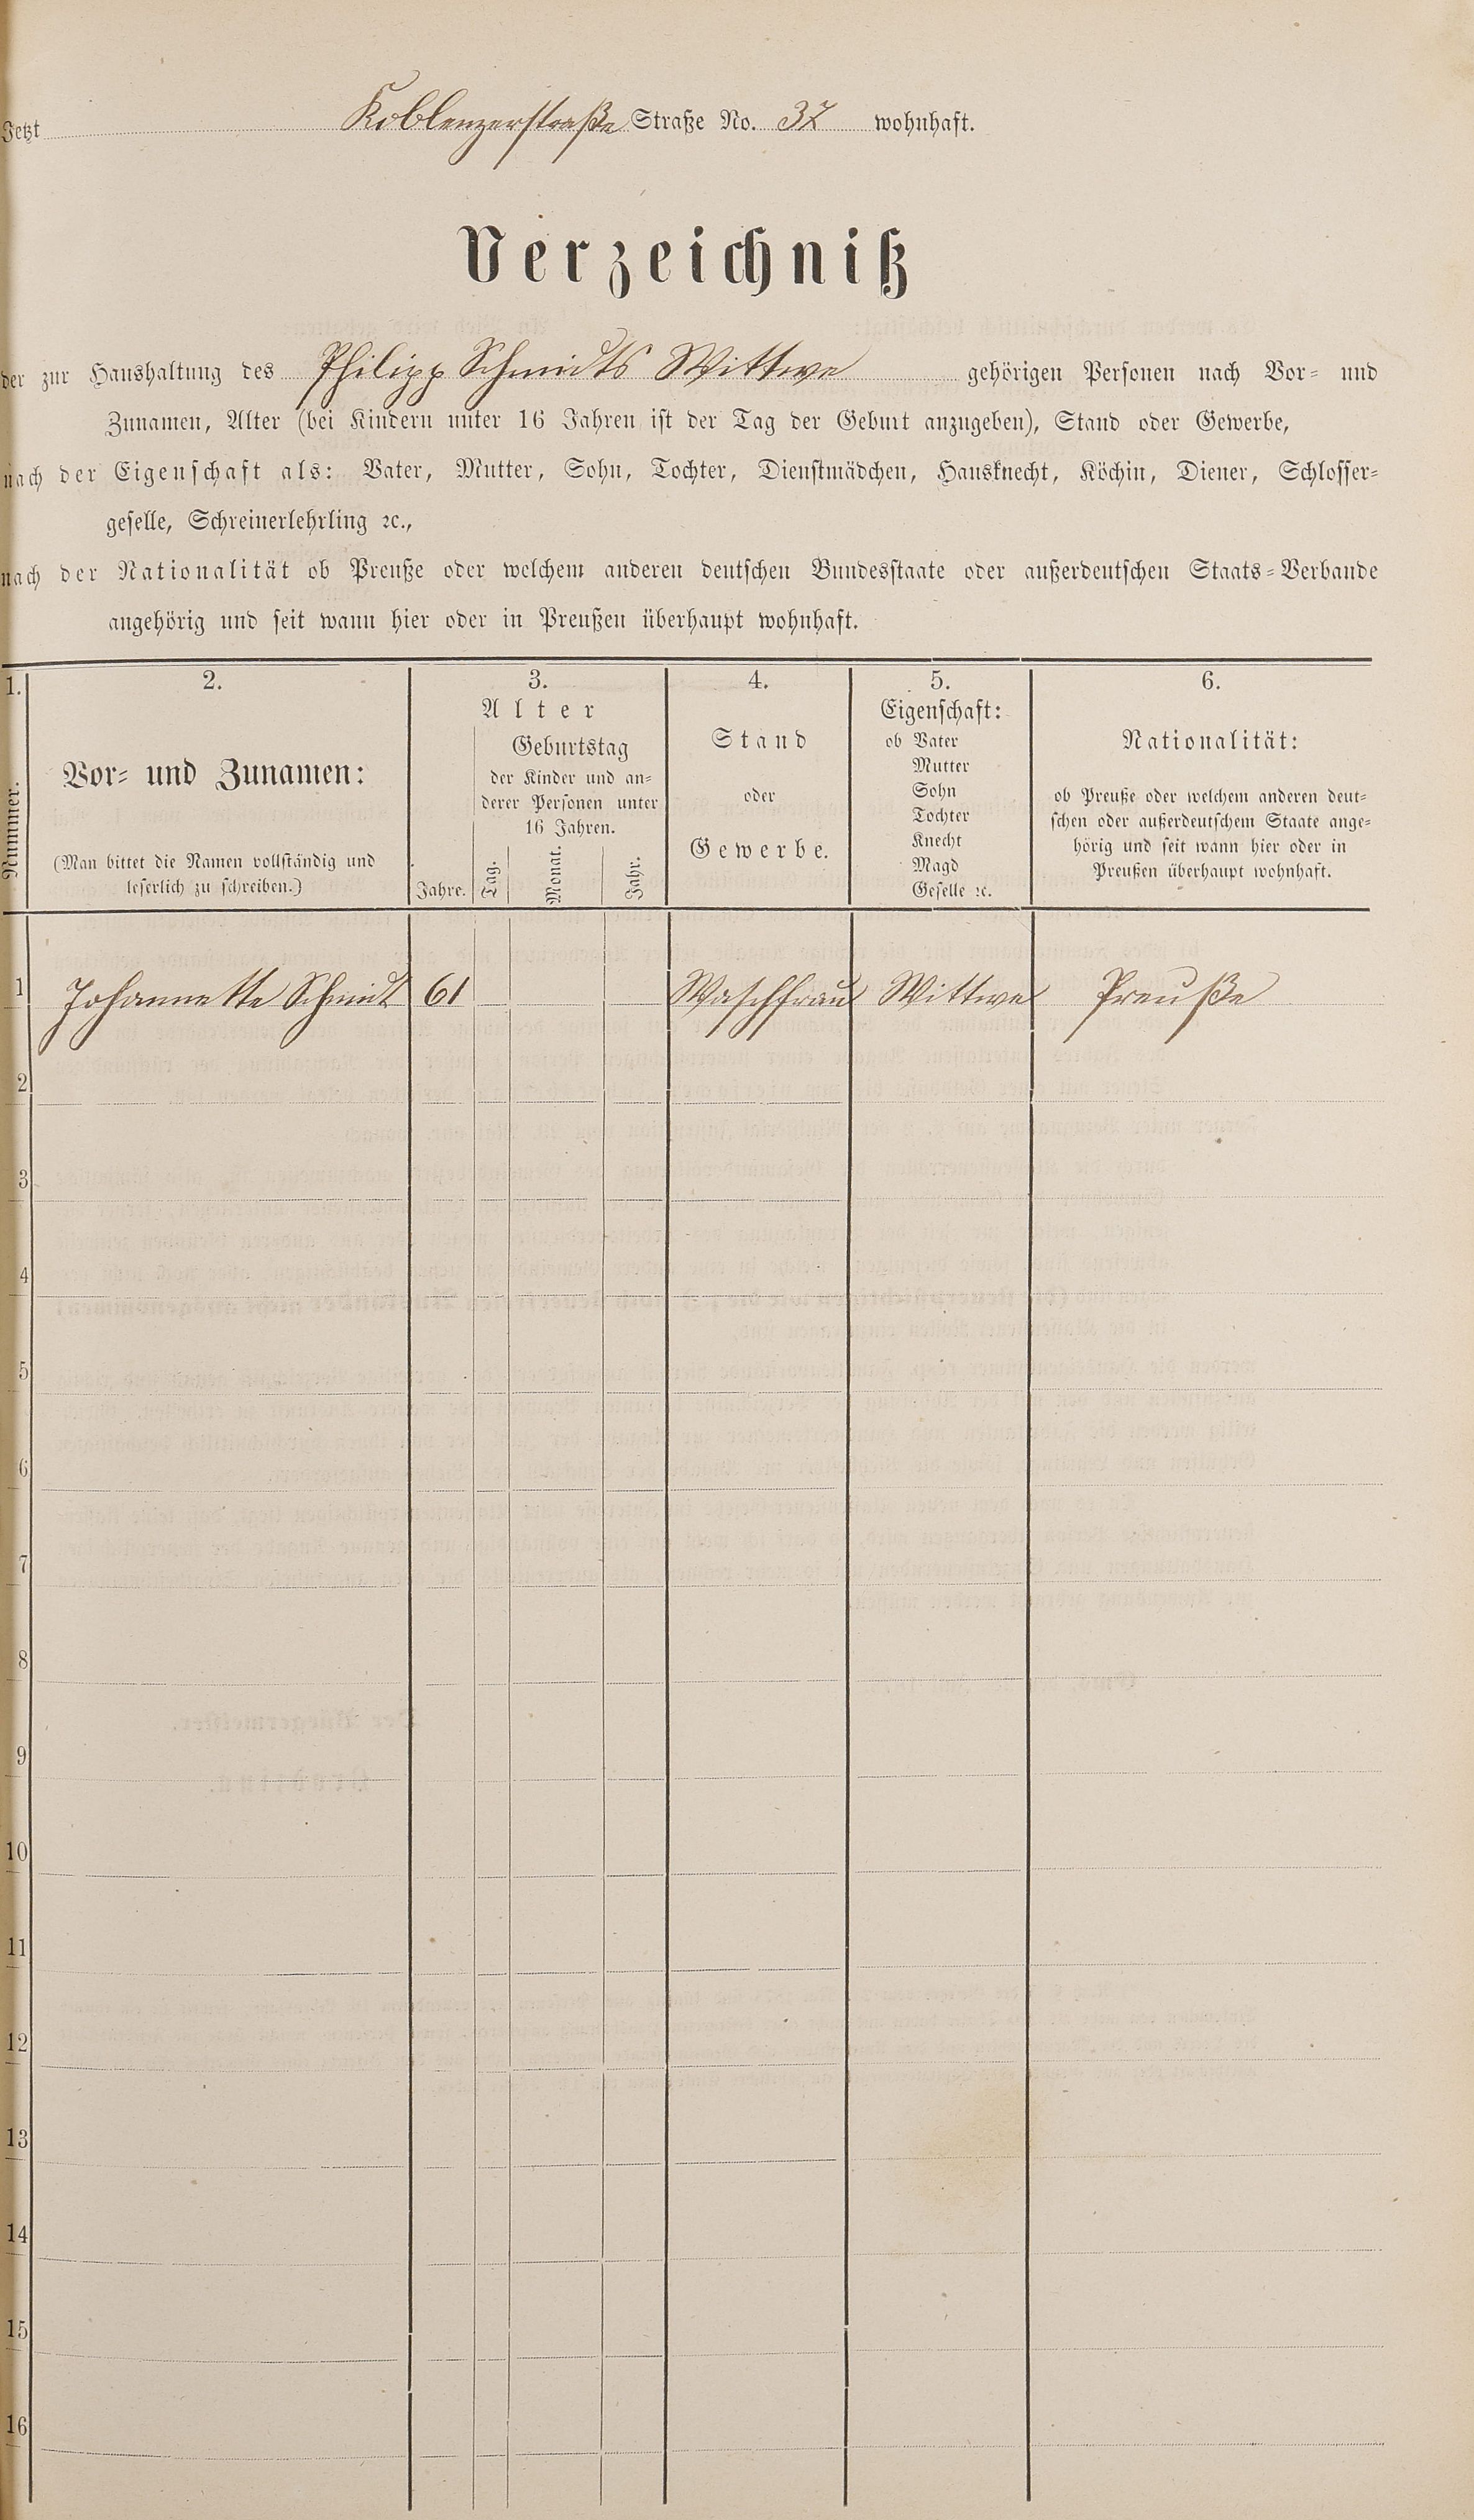 Jetzt Koblenzerstraße Straße No. 37 wohnhaft.
Verzeichniß
der zur Haushaltung des Philipp Schmidts Wittwe gehörigen Personen nach Vor- und
Zunamen, Alter (bei Kindern unter 16 Jahren ist der Tag der Geburt anzugeben), Stand oder Gewerbe,
nach der Eigenschaft als: Vater, Mutter, Sohn, Tochter, Dienstmädchen, Hausknecht, Köchin, Diener, Schlosser-
geselle, Schreinerlehrling ꝛc.,
nach der Nationalität ob Preuße oder welchem anderen deutschen Bundesstaate oder außerdeutschen Staats-Verbande
angehörig und seit wann hier oder in Preußen überhaupt wohnhaft.
1.
Nummer.
2.
Vor- und Zunamen:
(Man bittet die Namen vollständig und
leserlich zu schreiben.)
3.
Alter
Jahre.
Geburtstag
der Kinder und an-
derer Personen unter
16 Jahren.
Tag.
Monat.
Jahr.
4.
Stand
oder
Gewerbe.
5.
Eigenschaft:
ob Vater
Mutter
Sohn
Tochter
Knecht
Magd
Geselle ꝛc.
6.
Nationalität:
ob Preuße oder welchem anderen deut-
schen oder außerdeutschem Staate ange-
hörig und seit wann hier oder in
Preußen überhaupt wohnhaft.
1 Johannette Schmidt 61 Waschfrau Wittwe Preuße
2
3
4
5
6
7
8
9
10
11
12
13
14
15
16